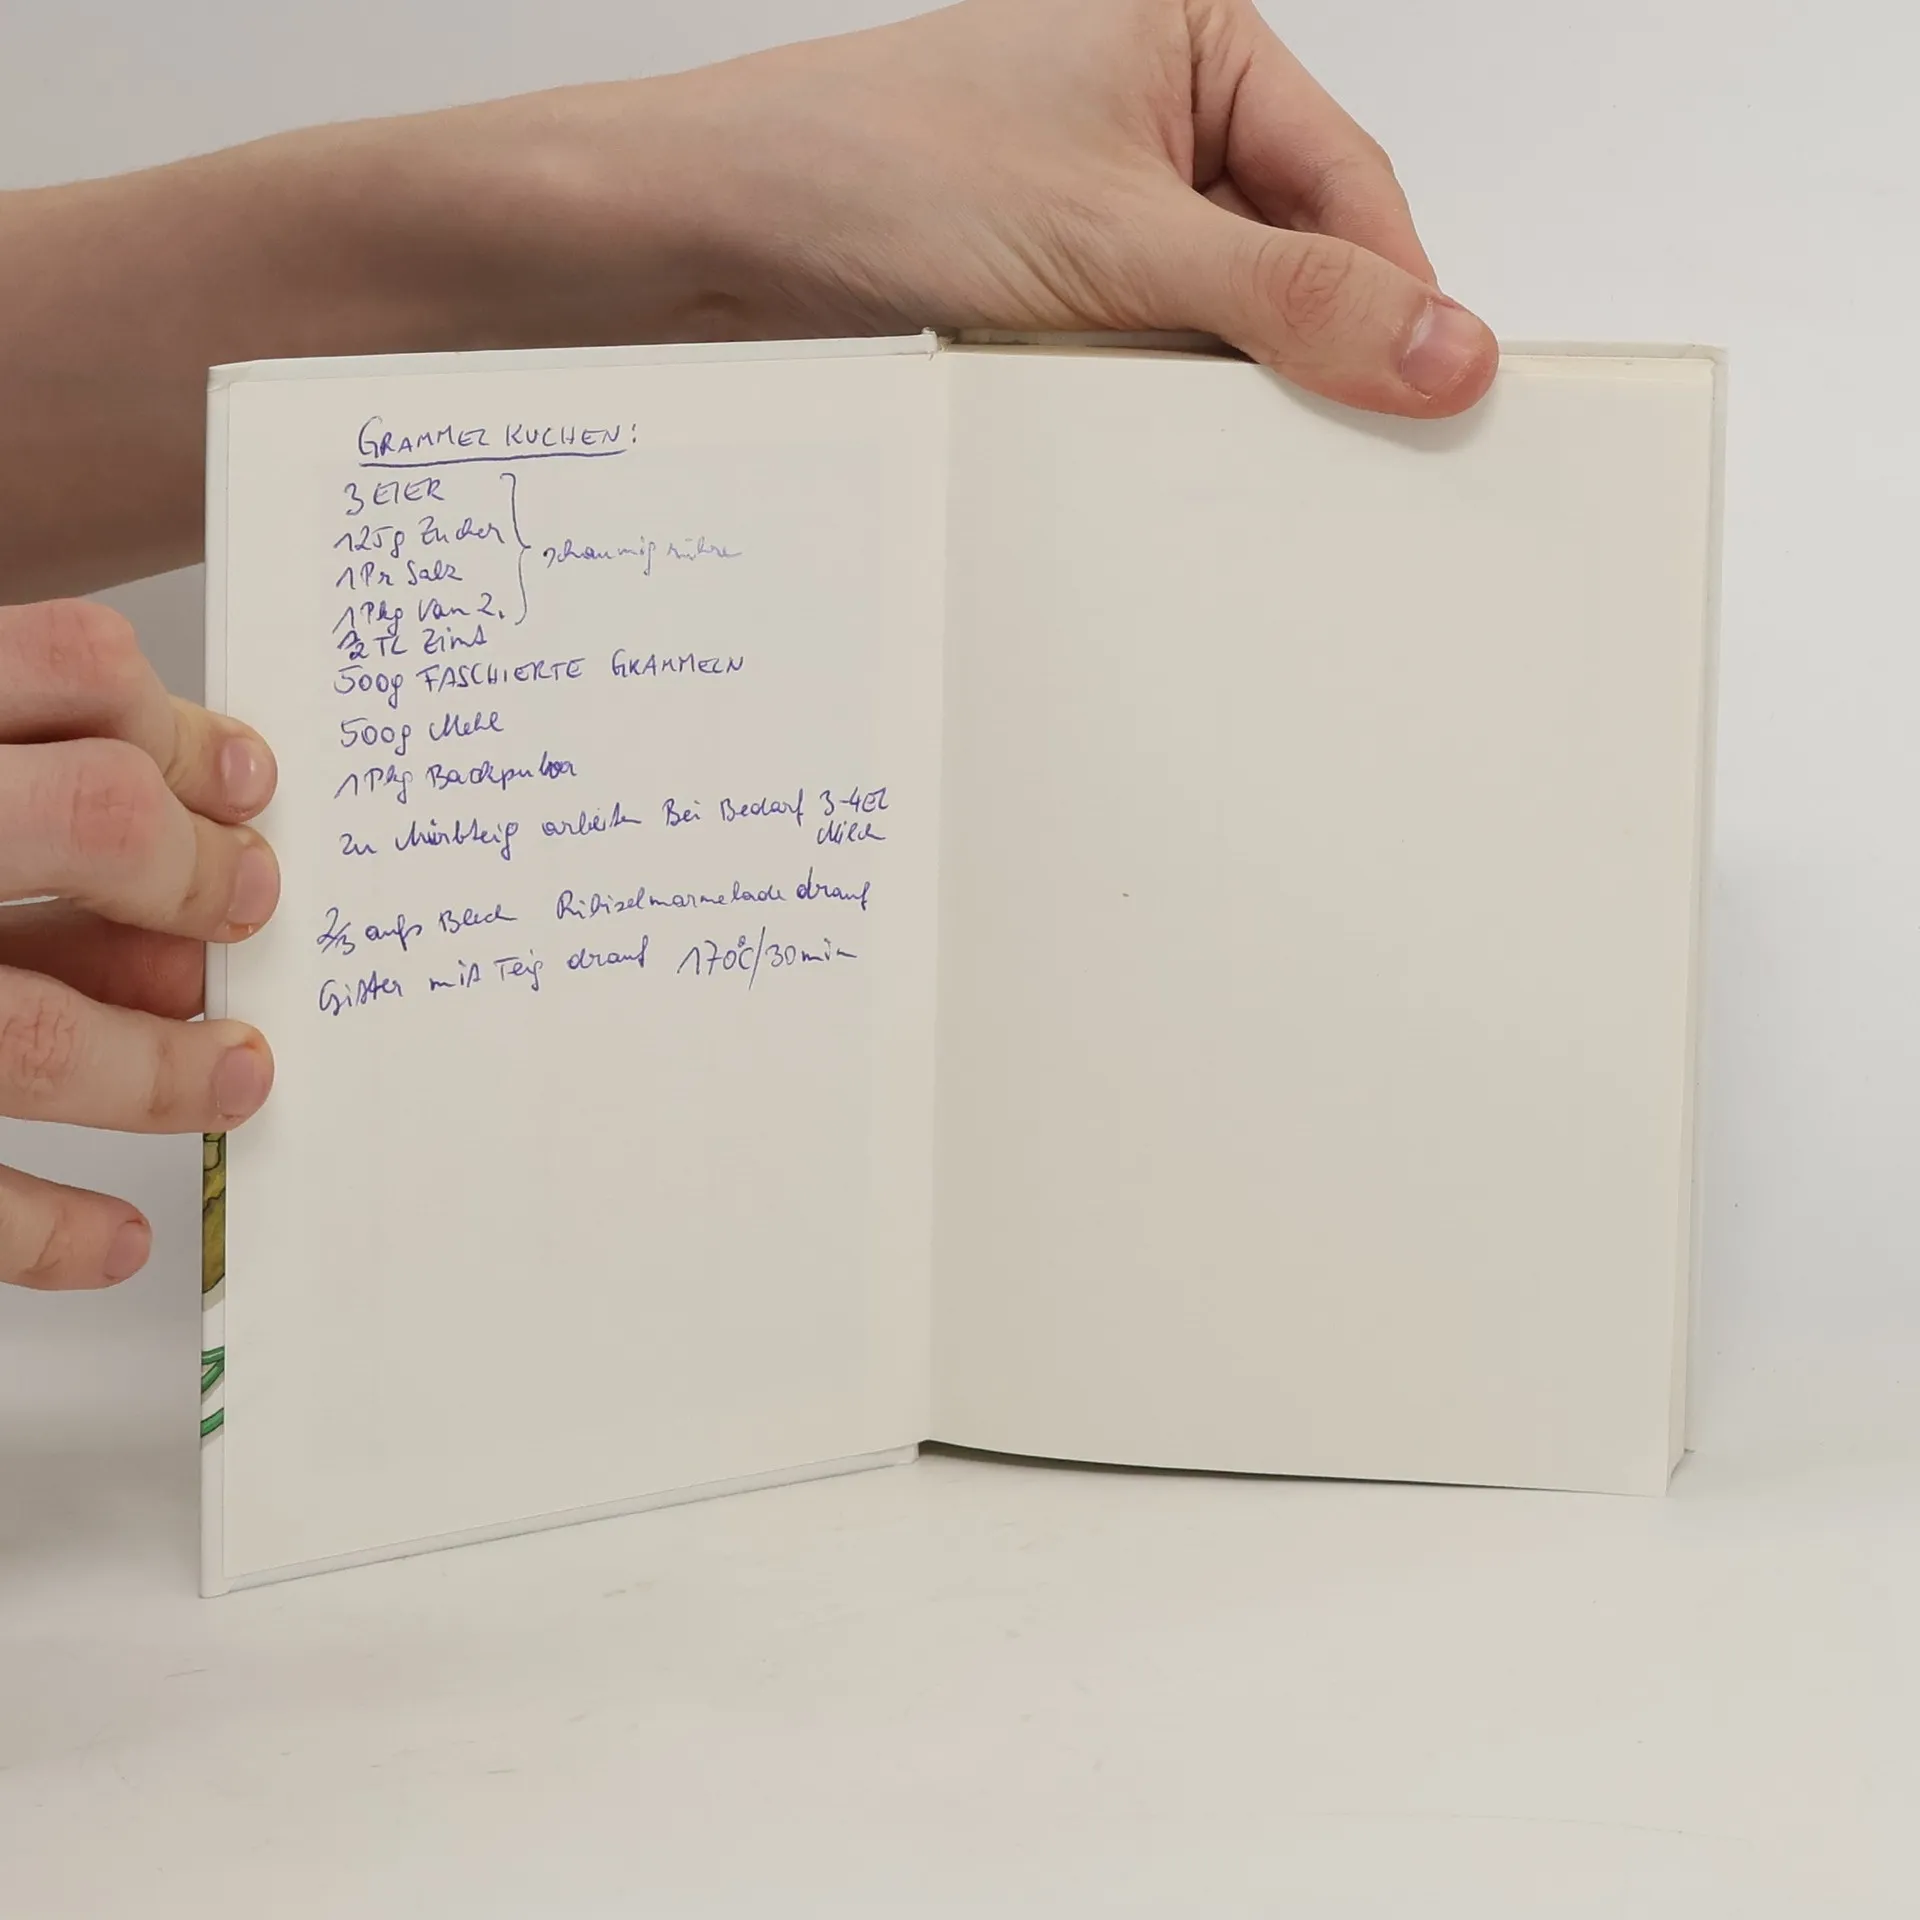 GRAMMEL KUCHEN:
3 EIER
125g Zucker
1 Pr Salz
1 Pkg Van Z.
schaumig rühren
1/2 TL Zimt
500g FASCHIERTE GRAMMELN
500g Mehl
1 Pkg Backpulver
zu Mürbteig arbeiten Bei Bedarf 3-4 EL
Milch
2/3 aufs Blech Ribiselmarmelade drauf
Gitter mit Teig drauf 170°C/30 min